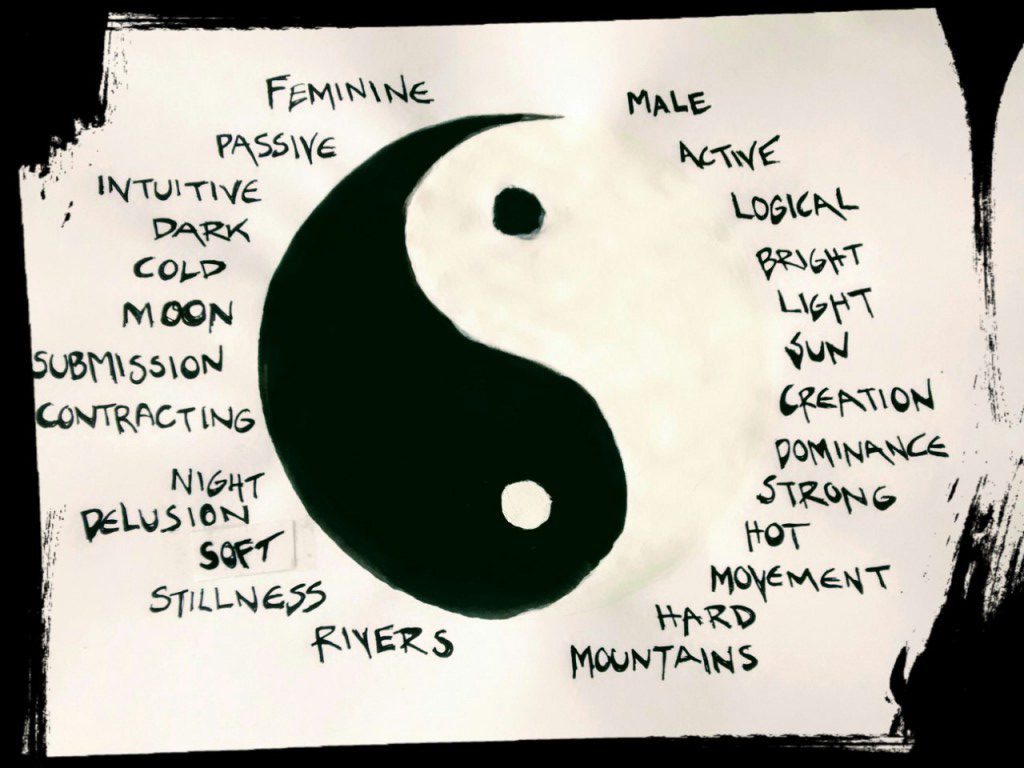 FEMININE
PASSIVE
INTUITIVE
DARK
COLD
MOON
SUBMISSION
CONTRACTING
NIGHT
DELUSION
SOFT
STILLNESS
RIVERS
MALE
ACTIVE
LOGICAL
BRIGHT
LIGHT
SUN
CREATION
DOMINANCE
STRONG
HOT
MOVEMENT
HARD
MOUNTAINS